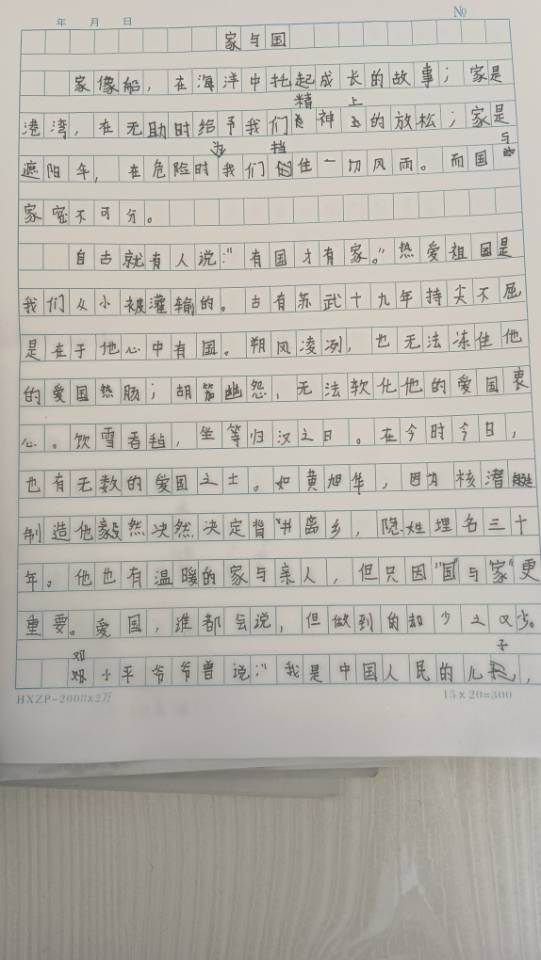 年 月 日 №
家与国
家像船，在海洋中托起成长的故事；家是
港湾，在无助时给予我们精神上的放松；家是
遮阳伞，在危险时为我们挡住一切风雨。而国与
家密不可分。
自古就有人说："有国才有家。"热爱祖国是
我们从小被灌输的。古有苏武十九年持尖不屈
是在于他心中有国。朔风凌冽，也无法冻住他
的爱国热肠；胡笳幽怨，无法软化他的爱国衷
心。饮雪吞毡，坐等归汉之日。在今时今日，
也有无数的爱国之士。如黄旭华，因为核潜艇
制造他毅然决然决定背井离乡，隐姓埋名三十
年。他也有温暖的家与亲人，但只因"国与家"更
重要。爱国，谁都会说，但做到的却少之又少。
邓小平爷爷曾说："我是中国人民的儿子，
HXZP-2008x2万 15x20=300